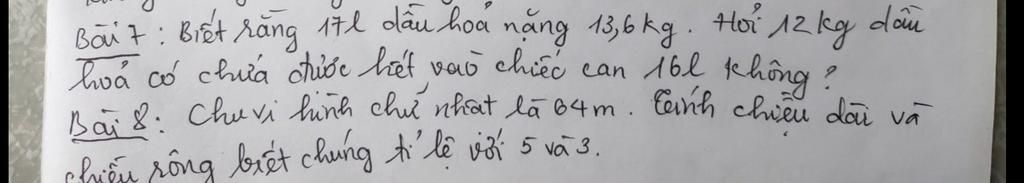 Bài 7 : Biết rằng 17l dầu hoả nặng 13,6kg. Hỏi 12kg dầu
hoả có chứa được hết vào chiếc can 16l không?
Bài 8: Chu vi hình chữ nhật là 64m. Tính chiều dài và
chiều rộng biết chúng tỉ lệ với 5 và 3.